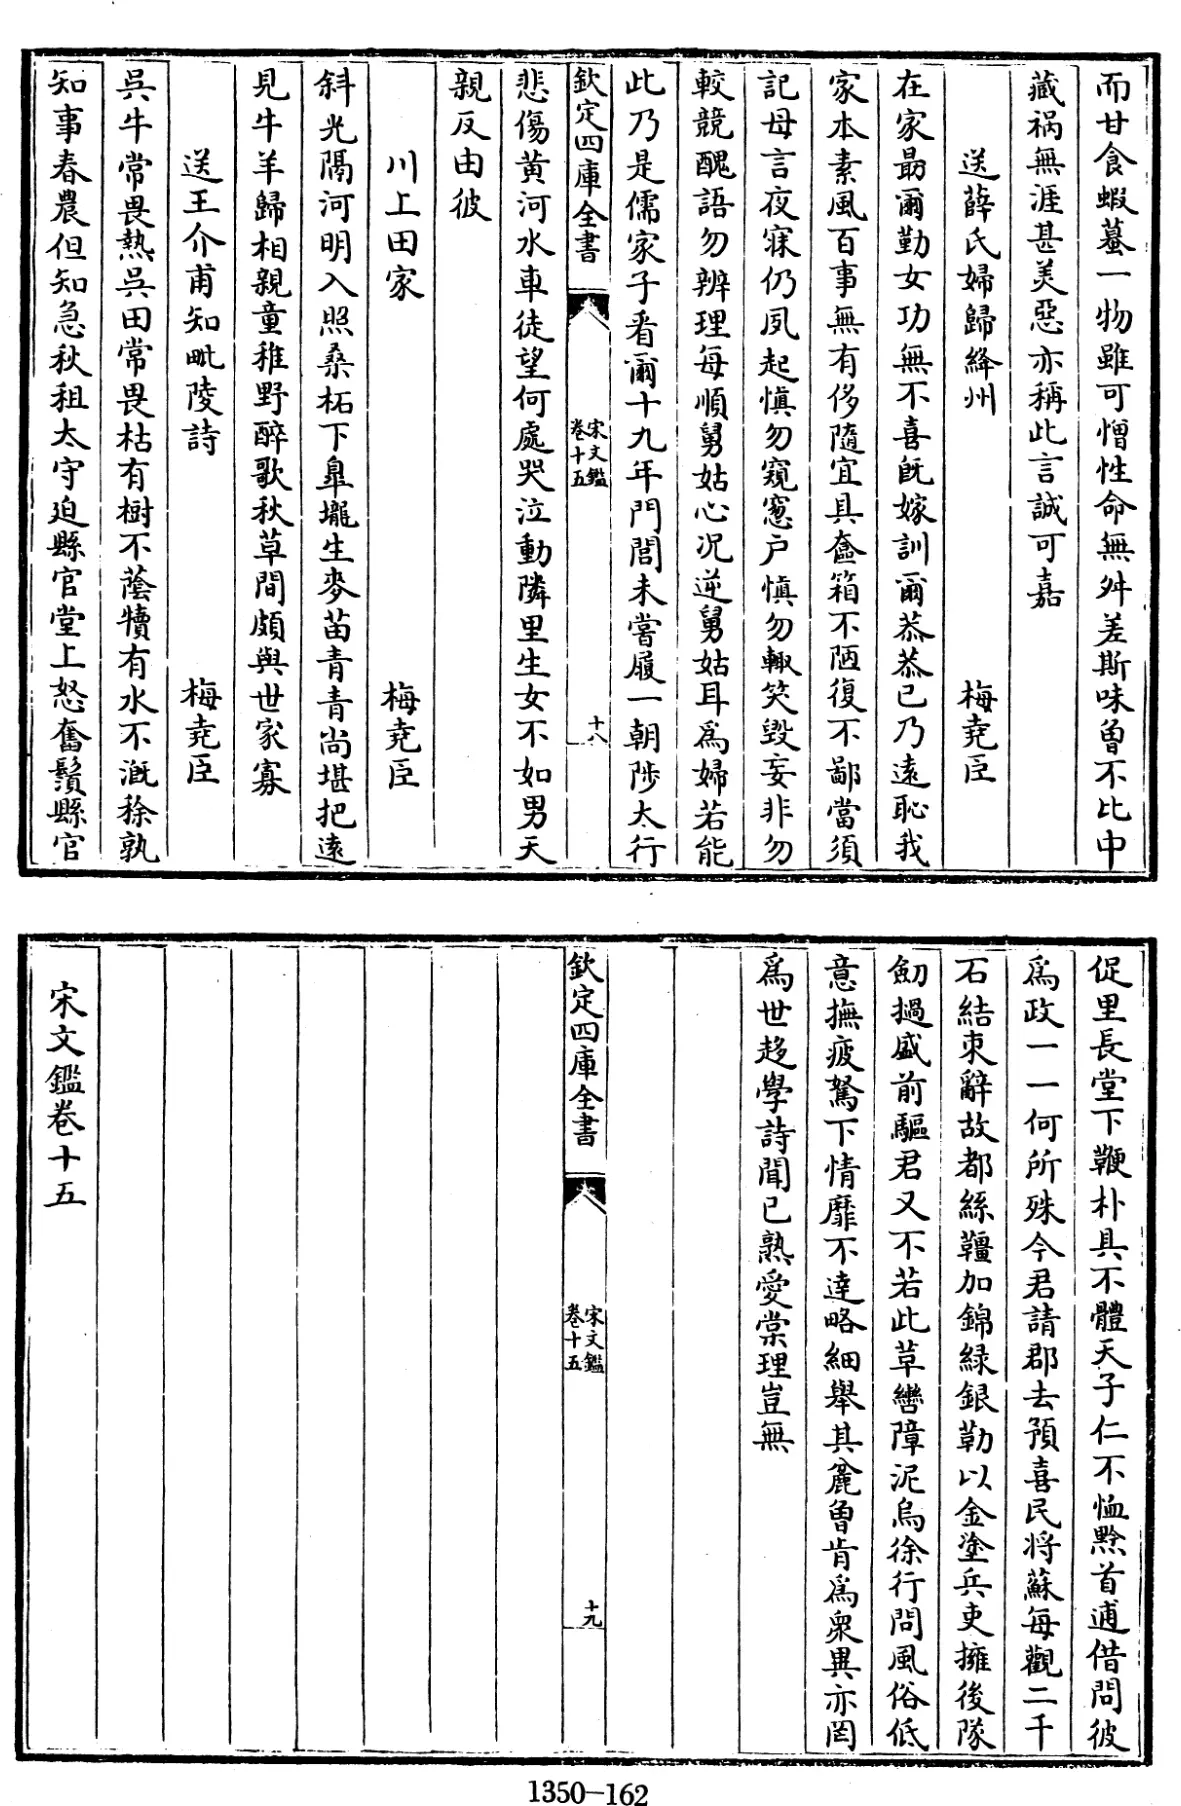 而甘食蝦蟇一物雖可憎性命無舛差斯味曽不比中
藏禍無涯甚美惡亦稱此言誠可嘉
送薛氏婦歸絳州 梅堯臣
在家勗爾勤女功無不喜旣嫁訓爾恭恭已乃遠恥我
家本素風百事無有侈隨宜具奩箱不陋復不鄙當須
記母言夜寐仍夙起慎勿窺窻户慎勿輙笑毀妄非勿
較競醜語勿辨理每順舅姑心况逆舅姑耳爲婦若能
此乃是儒家子看爾十九年門閭未嘗履一朝陟太行
欽定四庫全書 宋文鑑卷十五 十八
悲傷黄河水車徒望何處哭泣動隣里生女不如男天
親反由彼
川上田家 梅堯臣
斜光隔河明入照桑柘下臯壠生麥苗青青尚堪把逺
見牛羊歸相親童稚野醉歌秋草間頗與世家寡
送王介甫知毗陵詩 梅堯臣
吳牛常畏熱吳田常畏枯有樹不蔭犢有水不漑稌孰
知事春農但知急秋租太守迫縣官堂上怒奮鬚縣官
促里長堂下鞭朴具不體天子仁不恤黔首逋借問彼
爲政一一何所殊今君請郡去預喜民将蘇每觀二千
石結束辭故都絲韁加錦緑銀勒以金塗兵吏擁後隊
劒撾盛前驅君又不若此草轡障泥烏徐行問風俗低
意撫疲駑下情靡不達略細舉其麄曽肯爲衆異亦罔
爲世趍學詩聞已熟愛棠理豈無
欽定四庫全書 宋文鑑卷十五 十九
宋文鑑卷十五
1350-162